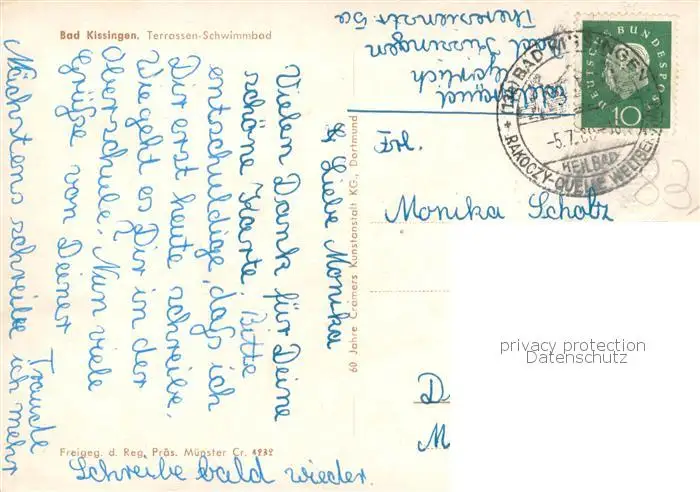 Bad Kissingen. Terrassen-Schwimmbad
L. Liebe Monika
Vielen Dank für Deine
schöne Karte. Bitte
entschuldige, daß ich
Dir erst heute schreibe.
Wie geht es Dir in der
Oberschule? Nun viele
Grüße von Deiner
Traudl
Nächstens schreibe ich mehr
Schreibe bald wieder.
Freigeg. d. Reg. Präs. Münster Cr. 4232
60 Jahre Cramers Kunstanstalt KG., Dortmund
Bad Kissingen
DEUTSCHE BUNDESPOST
10
BAD KISSINGEN
-5.7.60
HEILBAD
RAKOCZY-QUELLE
Frl.
Monika Scholz
D
M
83
privacy protection
Datenschutz